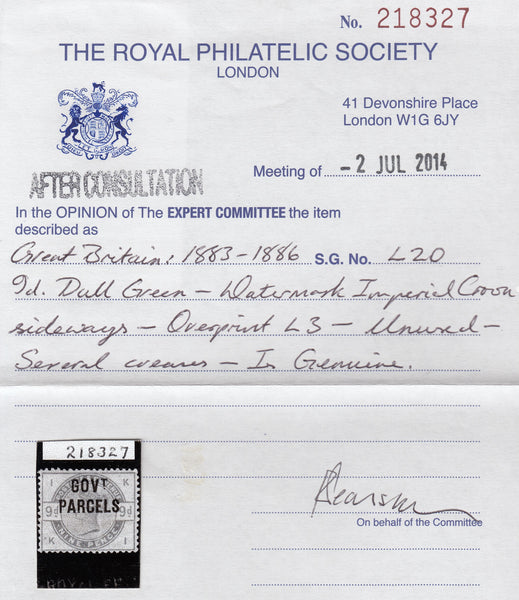 No. 218327
THE ROYAL PHILATELIC SOCIETY
LONDON
41 Devonshire Place
London W1G 6JY
Meeting of -2 JUL 2014
AFTER CONSULTATION
In the OPINION of The EXPERT COMMITTEE the item
described as
Great Britain: 1883-1886 S.G. No. L20
9d. Dull Green - Watermark Imperial Crown
sideways - Overprint L3 - Unused -
Several creases - Is Genuine.
218327
I K
GOVT
PARCELS
9d 9d
NINE PENCE
K I
On behalf of the Committee